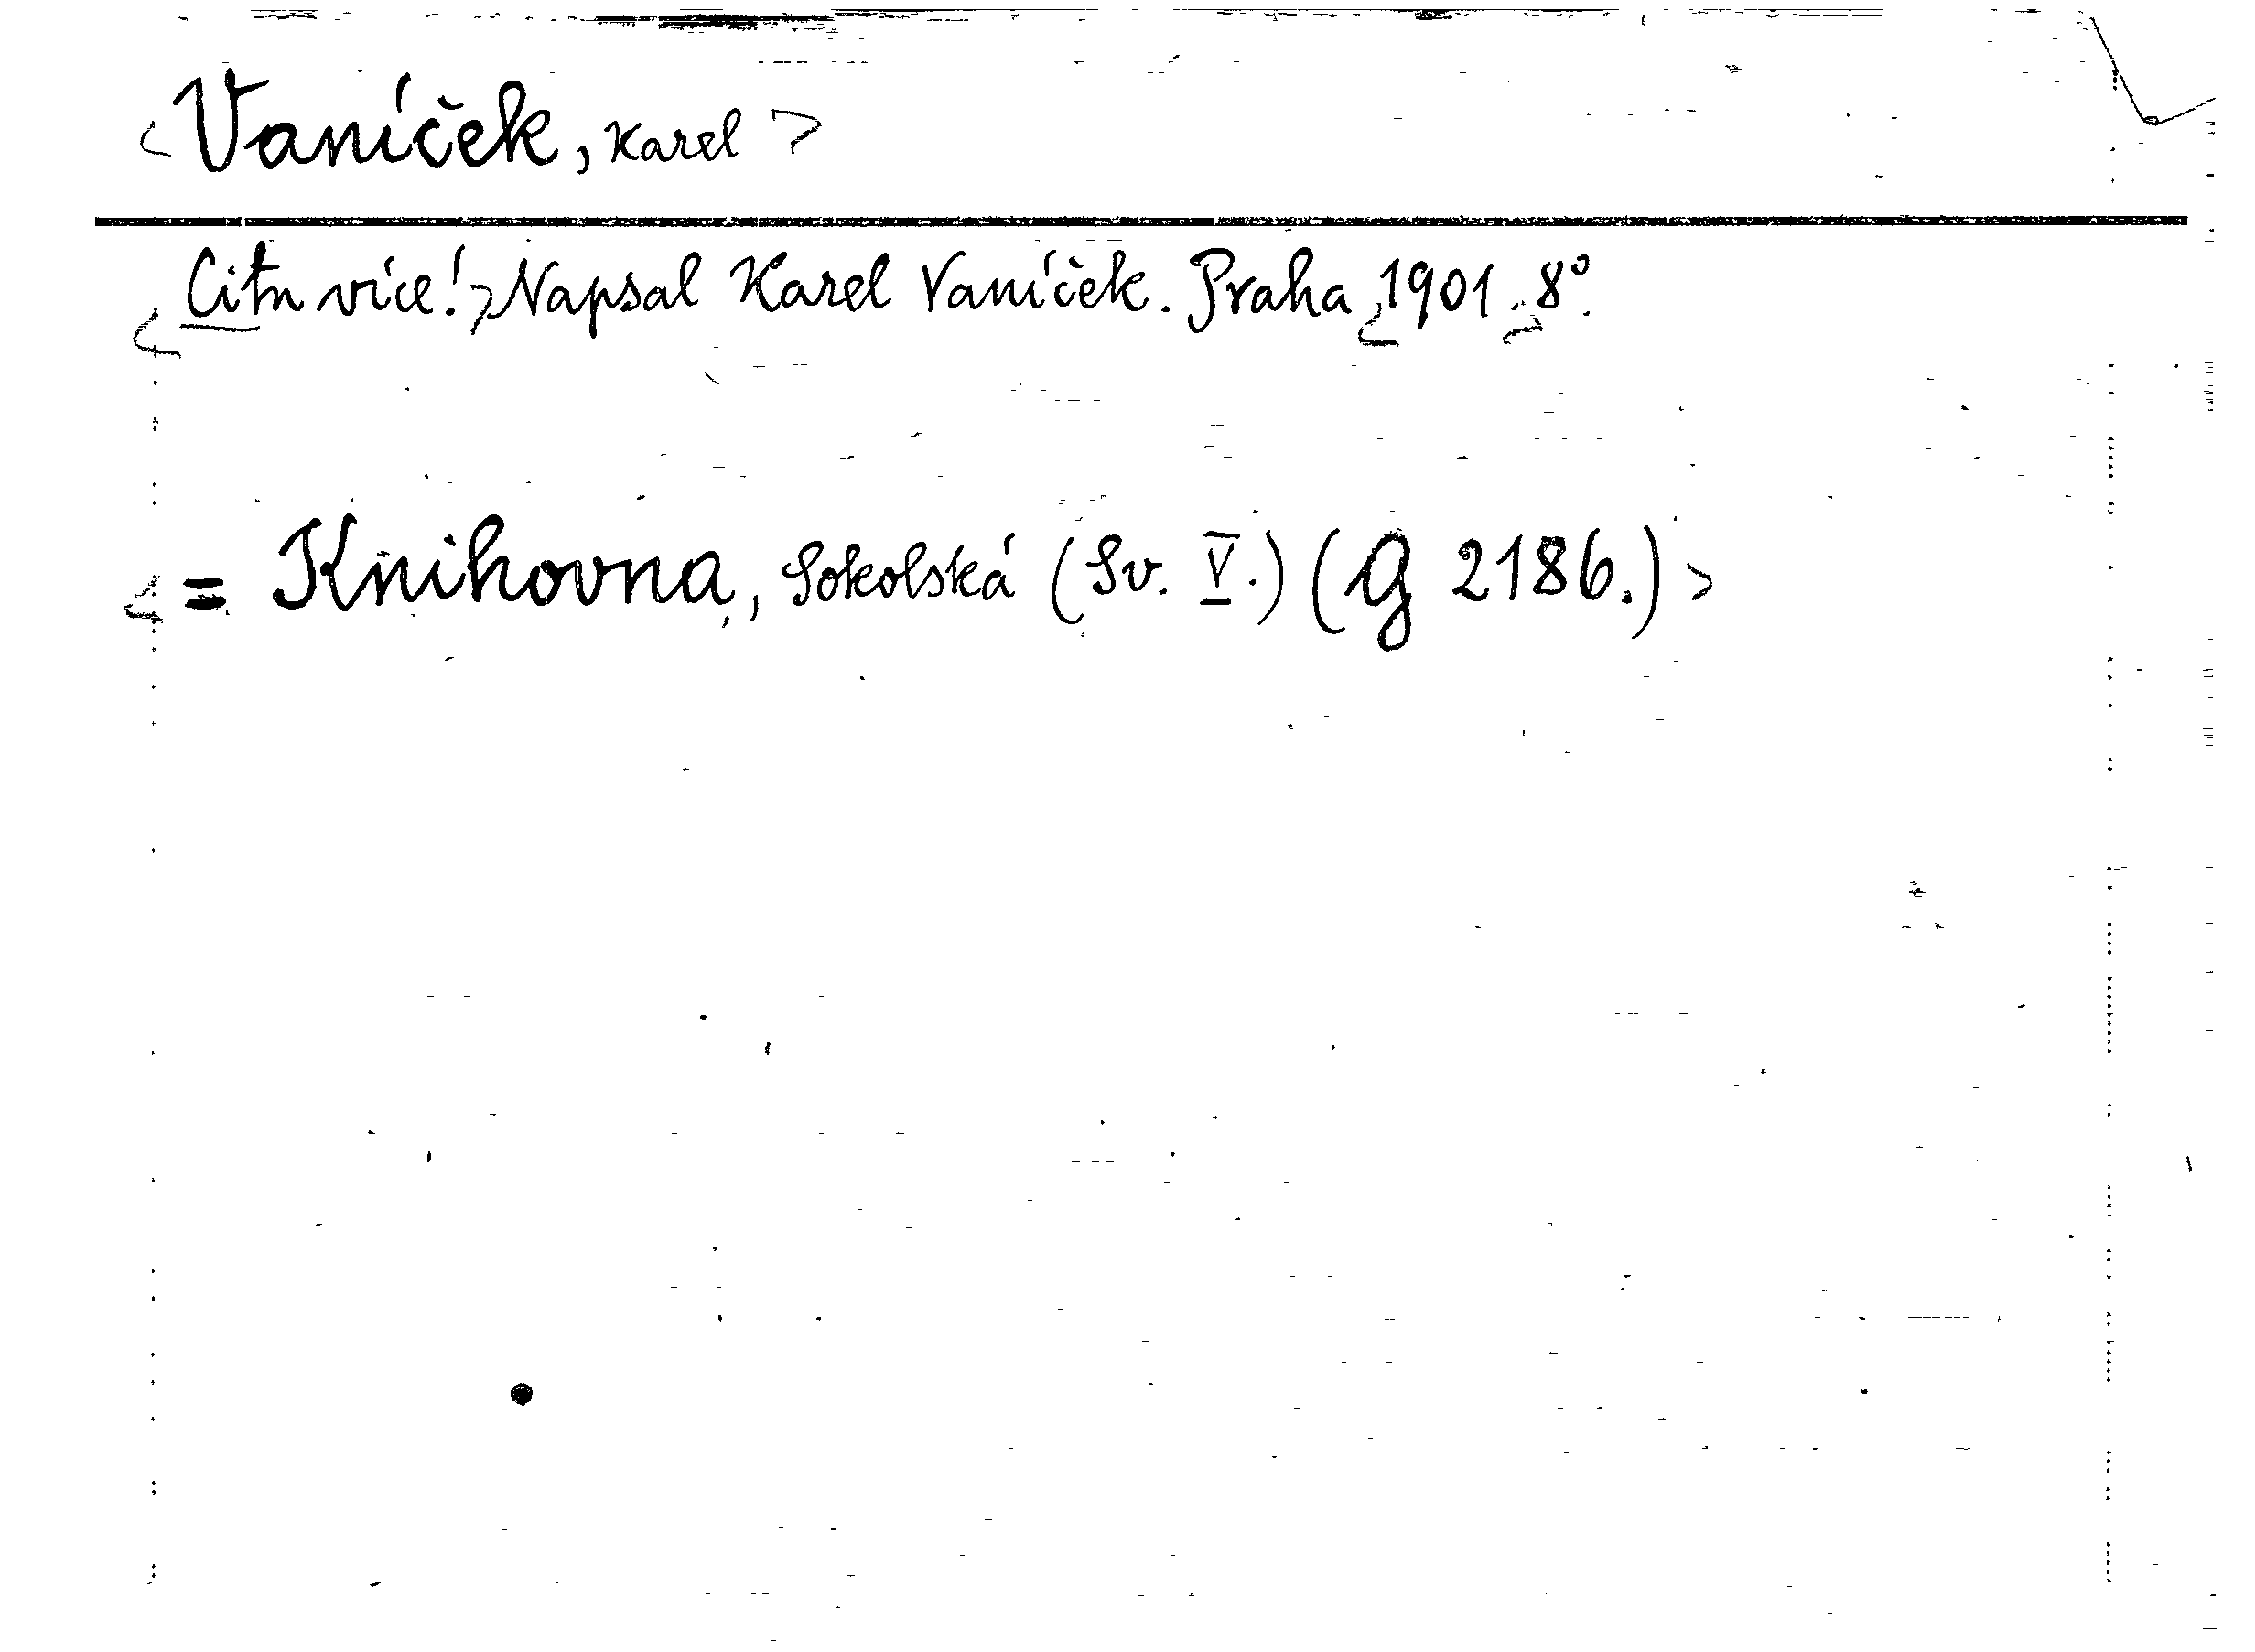 <Vaníček, Karel>
<Citu více!> Napsal Karel Vaníček. Praha, <1901.> 8°.
<= Knihovna, Sokolská (Sv. V.) (G 2186.)>